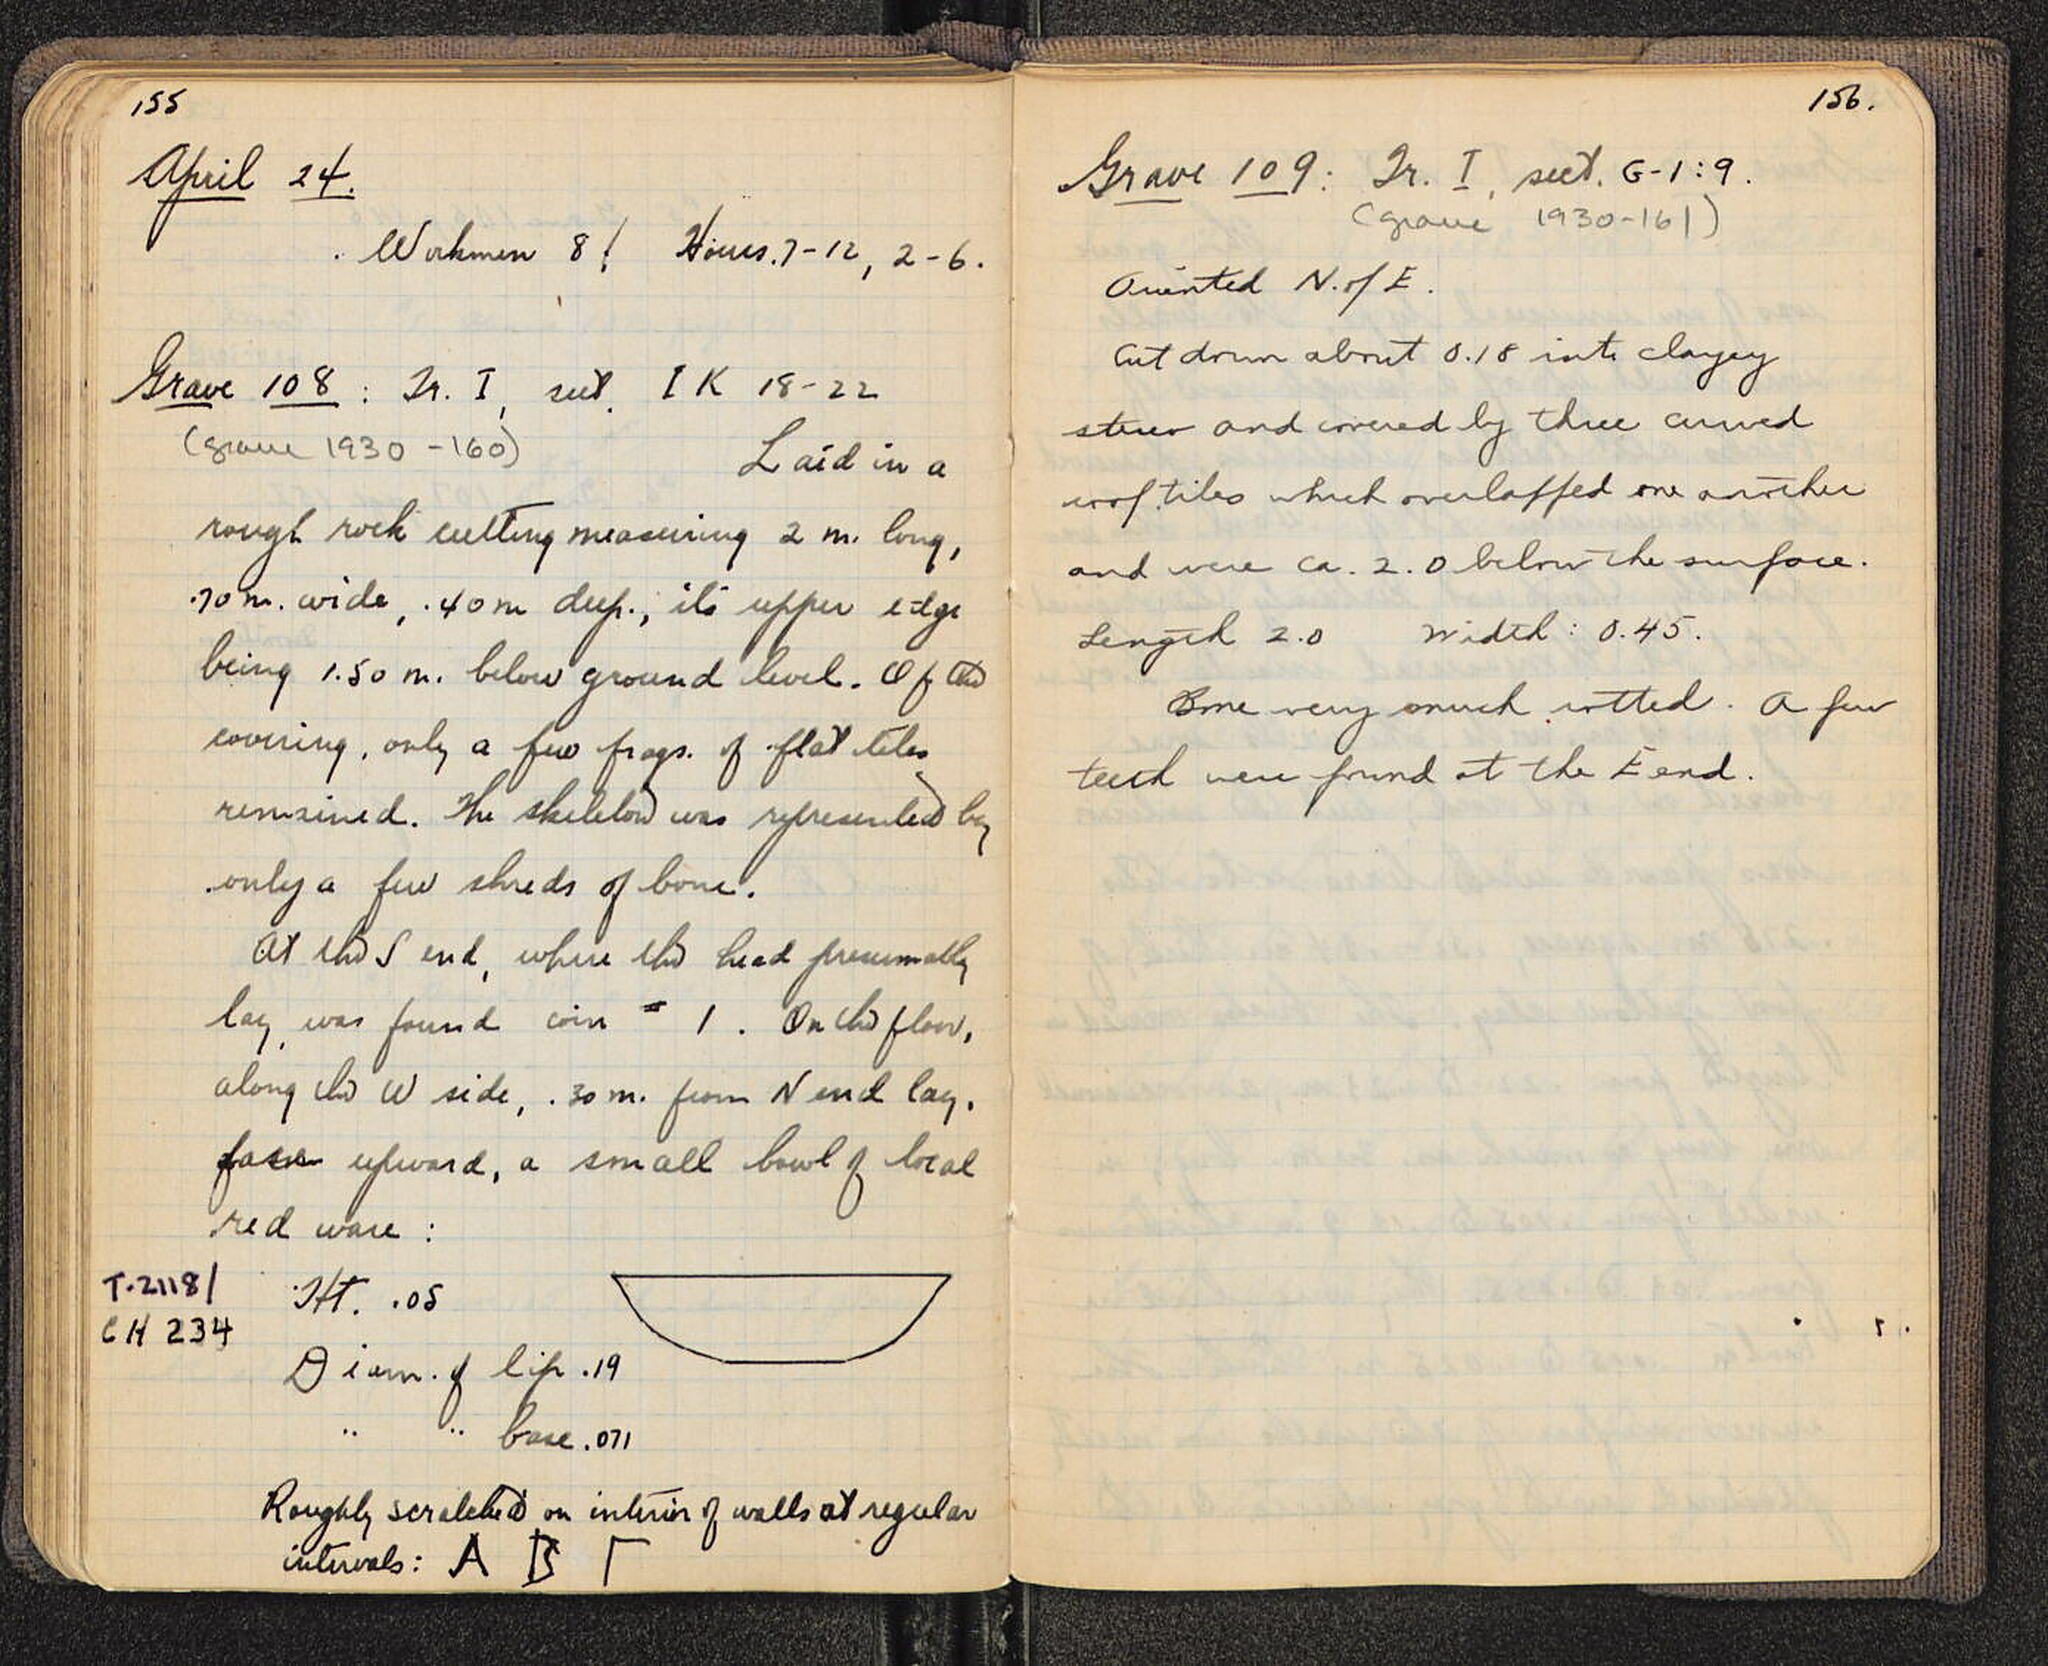 155
April 24.
Workmen 8! Hours. 7-12, 2-6.
Grave 108 : Tr. I, sect. I K 18-22
(grave 1930-160)
Laid in a
rough rock cutting measuring 2 m. long,
.70 m. wide, .40 m deep., its upper edge
being 1.50 m. below ground level. Of the
covering, only a few frags. of flat tiles
remained. The skeleton was represented by
only a few shreds of bone.
At the S end, where the head presumably
lay, was found coin 1. On the floor,
along the W side, .30 m. from N end lay,
upward, a small bowl of local
red ware :
T.2118/
CH 234
Ht. .05
Diam. of lip .19
" " base .071
Roughly scratched on interior of walls at regular
intervals: A B Γ
156.
Grave 109: Tr. I, sect. G-1:9.
(grave 1930-161)
Oriented N. of E.
Cut down about 0.18 into clayey
and covered by three curved
roof tiles which overlapped one another
and were ca. 2.0 below the surface.
Length 2.0 Width: 0.45.
Bone very much rotted. A few
teeth were found at the E end.